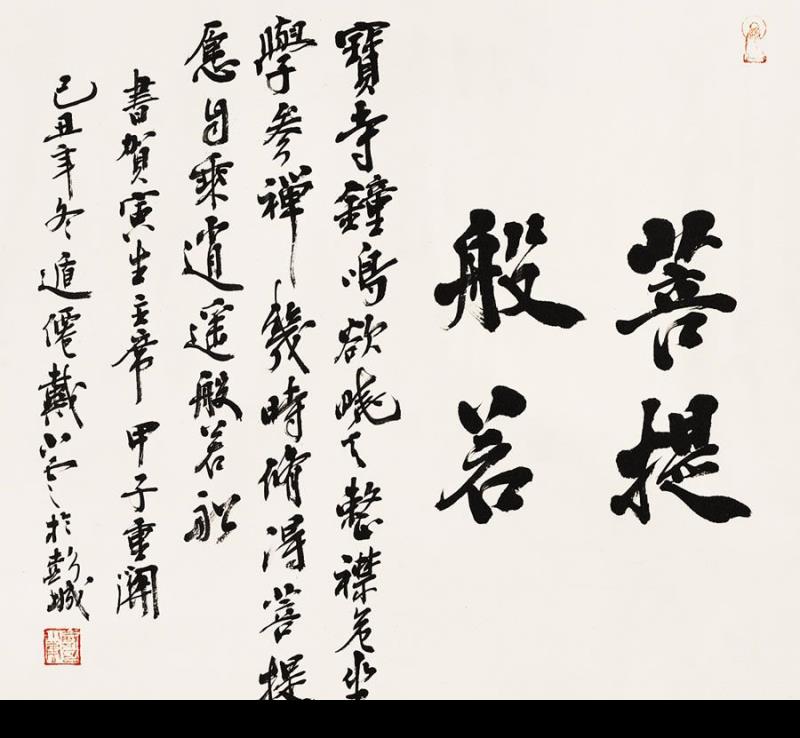 菩提
般若
寶寺鐘鳴欲曉天整襟危坐
學參禪幾時脩得菩提
愿自乘逍遥般若船
書賀寅生主席 甲子重
己丑年冬遁僊戴小於彭城